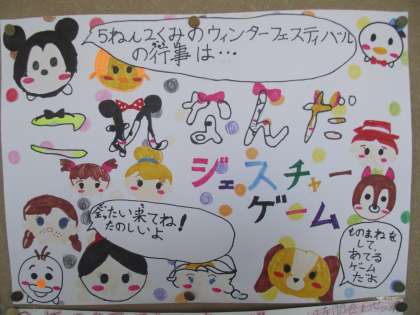 5ねん2くみのウィンターフェスティバル
の行事は…
これなんだ
ジェスチャー
ゲーム
ぜったい来てね!
たのしいよ
ものまねを
して、
あてる
ゲーム
だよ